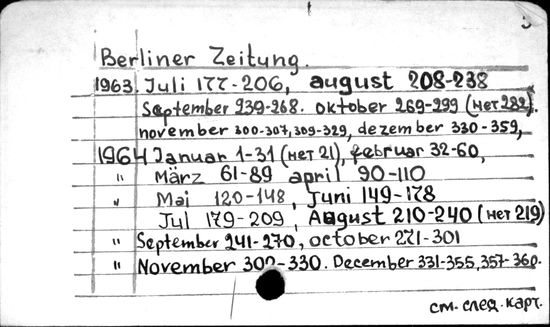 Berliner Zeitung.
1963. Juli 177-206, august 208-238
September 239-268. oktober 269-299 (нет 282).
november 300-307, 309-329, dezember 330-359,
1964 Januar 1-31 (нет 21), februar 32-60,
" März 61-89 april 90-110
" Mai 120-148, Juni 149-178
Jul 179-209, August 210-240 (нет 219)
" September 241-270, october 271-301
" November 302-330. December 331-355, 357-360.
см. след. карт.